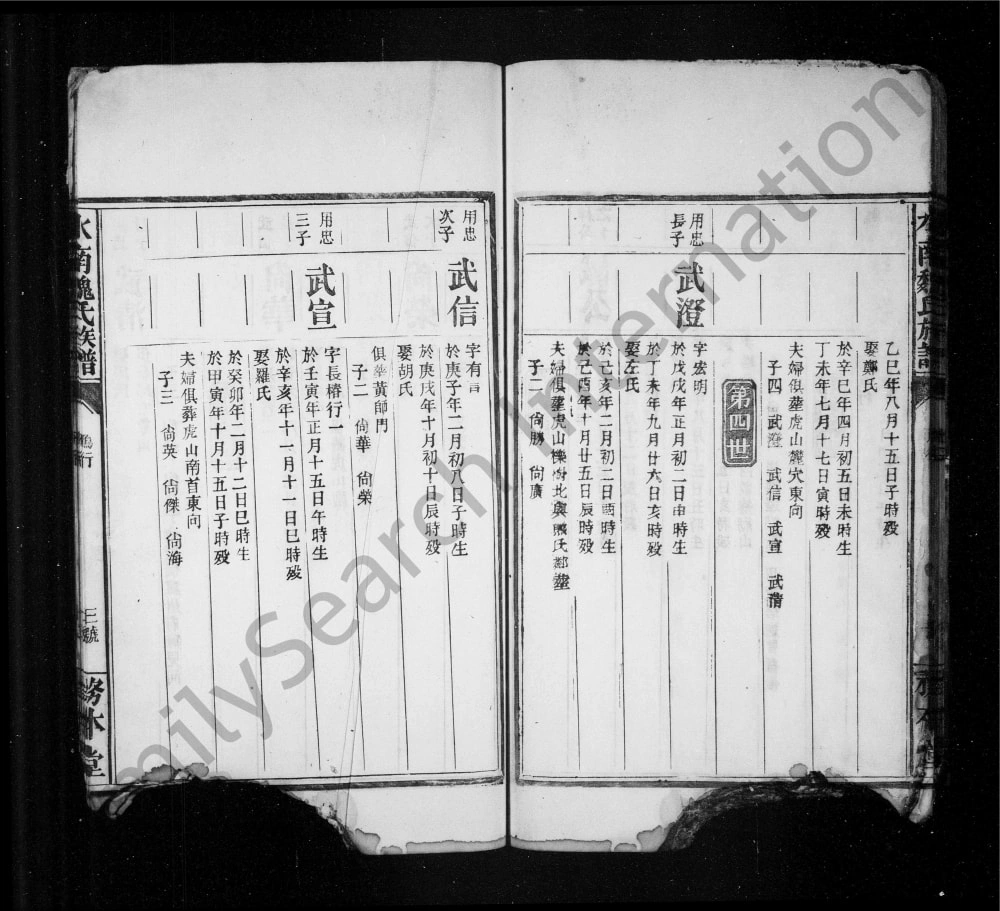 乙巳年八月十五日子時殁
娶鄭氏
於辛巳年四月初五日未時生
丁未年七月十七日寅時殁
夫婦俱塟虎山麓穴東向
子四 武澄 武信 武宣 武清
第四世
用忠
長子
武澄
字宏明
於戊戌年正月初二日申時生
於丁未年九月廿六日亥時殁
娶左氏
於己亥年二月初二日酉時生
於己酉年十月廿五日辰時殁
夫婦俱塟虎山 與熊氏鄰塟
子二 尙勝 尙廣
用忠
次子
武信
字有言
於庚子年二月初八日子時生
於庚戌年十月初十日辰時殁
娶胡氏
俱塟黃師門
子二 尙華 尙榮
用忠
三子
武宣
字長椿行一
於壬寅年正月十五日午時生
於辛亥年十一月十一日巳時殁
娶羅氏
於癸卯年二月十二日巳時生
於甲寅年十月十五日子時殁
夫婦俱葬虎山南首東向
子三 尙英 尙傑 尙海
水南魏氏族譜
三號
務本堂
水南魏氏族譜
本堂
FamilySearch International